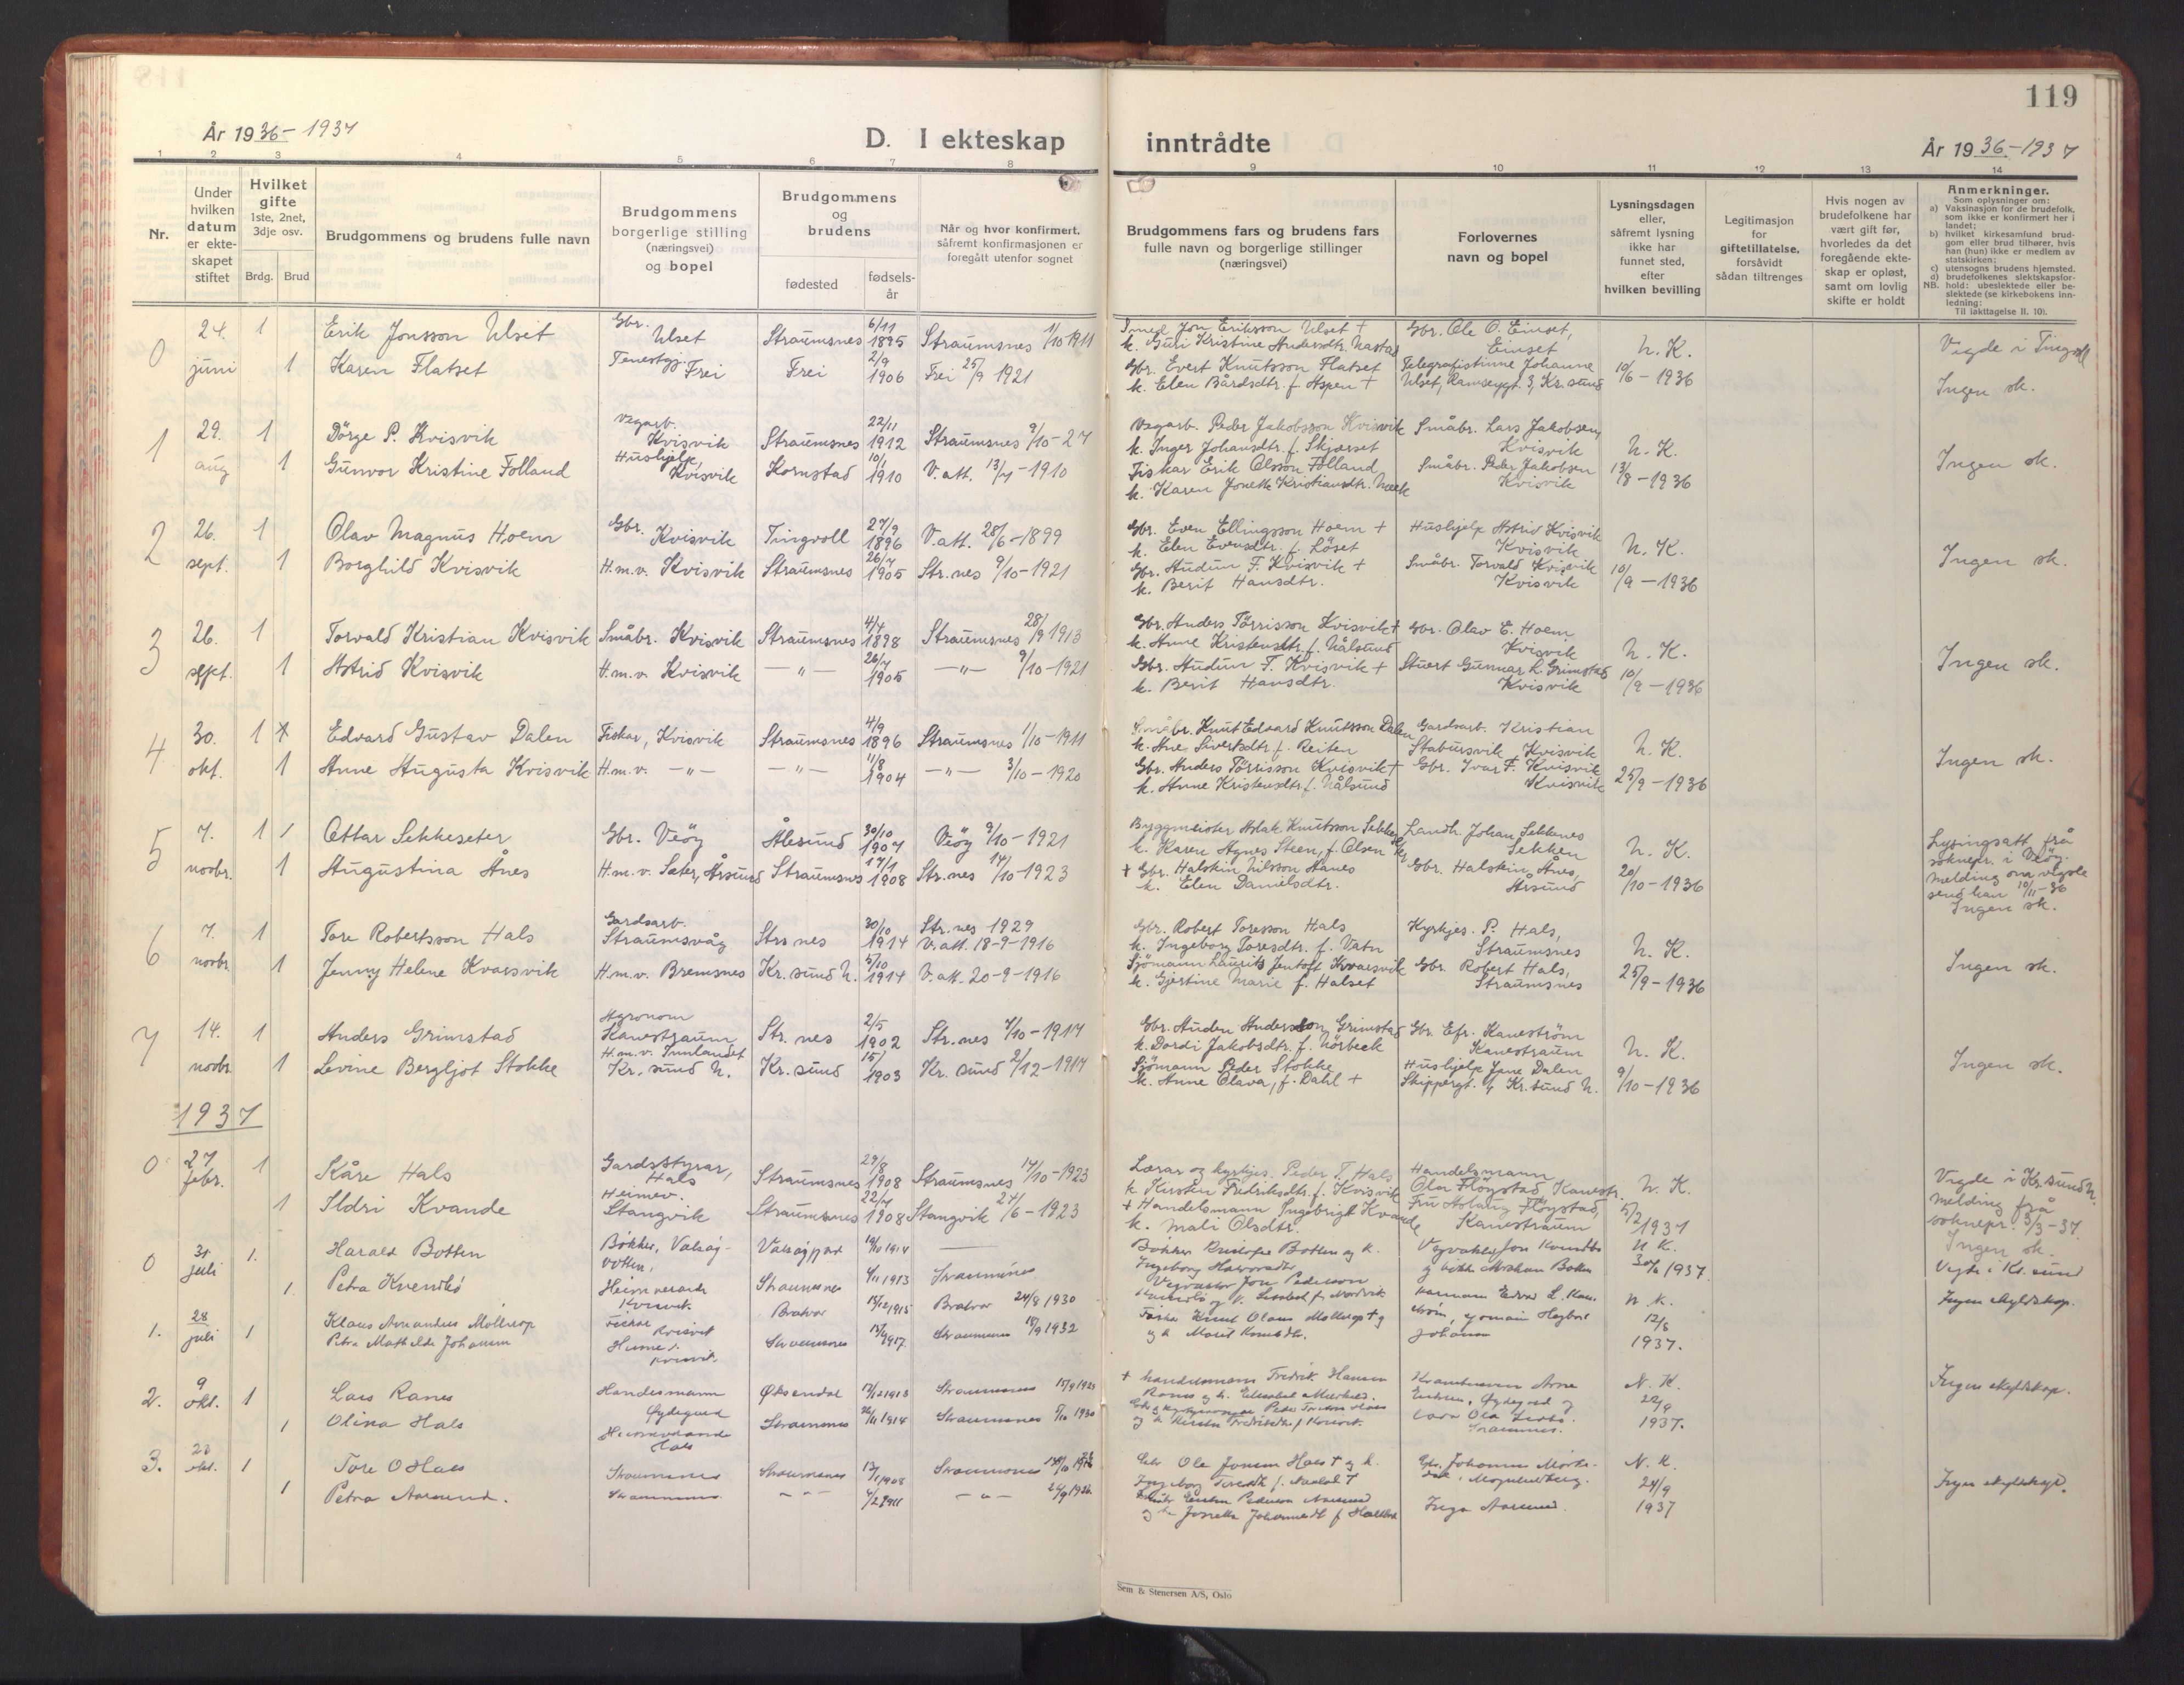 119
År 1936-1937
D. I ekteskap inntrådte
År 1936-1937
1 2 3 4 5 6 7 8 9 10 11 12 13 14
Nr.
Under hvilken datum er ekte-skapet stiftet
Hvilket gifte
1ste, 2net, 3dje osv.
Brdg. Brud
Brudgommens og brudens fulle navn
Brudgommens borgerlige stilling (næringsvei) og bopel
Brudgommens og brudens
fødested
fødsels-år
Når og hvor konfirmert, såfremt konfirmasjonen er foregått utenfor sognet
Brudgommens fars og brudens fars fulle navn og borgerlige stillinger (næringsvei)
Forlovernes navn og bopel
Lysningsdagen eller, såfremt lysning ikke har funnet sted, efter hvilken bevilling
Legitimasjon for giftetillatelse, forsåvidt sådan tiltrenges
Hvis nogen av brudefolkene har vært gift før, hvorledes da det foregående ekte-skap er opløst, samt om lovlig skifte er holdt
Anmerkninger.
Som oplysninger om:
a) Vaksinasjon for de brudefolk, som ikke er konfirmert her i landet;
b) hvilket kirkesamfund brud-gom eller brud tilhører, hvis han (hun) ikke er medlem av statskirken;
c) utensogns brudens hjemsted.
d) brudefolkenes slektskapsfor-hold: ubeslektede eller be-slektede (se kirkebokens inn-ledning:
NB.
Til iakttagelse II. 10).
0 24. juni 1 Erik Jonsson Ulset Gbr. Ulset Straumsnes 6/11 1895 Straumsnes 1/10 1911
Smed Jon Eriksson Ulset + k. Guri Kristine Andersdtr. Nastad Gbr. Ole O. Einset, Einset N. K. Vigde i Tingvoll
1 Karen Flatset Tenestgj. Frei Frei 2/9 1906 Frei 25/9 1921
Gbr. Evert Knutsson Flatset k. Elen Bårdsdtr. f. Aspen + Telegrafistinne Johanne Ulset, Ramseygt. 3, Kr.sund 10/6 - 1936 Ingen sk.
1 29. aug 1 Dørge P. Kvisvik Vegarb. Kvisvik Straumsnes 22/11 1912 Straumsnes 9/10-27
Vegarb. Peder Jakobsson Kvisvik k. Inger Johansdtr. f. Skjærset Småbr. Lars Jakobsen, Kvisvik N. K.
1 Gunvor Kristine Folland Hushjelp, Kvisvik Kornstad 1910 V. att. 13/7-1910
Fiskar Erik Olsson Folland k. Karen Jonette Kristiansdtr. Småbr. Peder Jakobsen Kvisvik 13/8-1936 Ingen sk.
2 26. sept. 1 Olav Magnus Hoem Gbr. Kvisvik Tingvoll 27/9 1896 V. att. 28/6-1899
Gbr. Even Ellingsson Hoem + k. Elen Evensdtr. f. Löset Hushjelp Astrid Kvisvik Kvisvik N. K.
1 Borghild Kvisvik H.m.v. Kvisvik Straumsnes 26/7 1905 Str.nes 9/10-1921
Gbr. Audun F. Kvisvik + k. Berit Hansdtr. Småbr. Torvald Kvisvik Kvisvik 10/9-1936 Ingen sk.
3 26. sept. 1 Torvald Kristian Kvisvik Småbr. Kvisvik Straumsnes 4/7 1898 Straumsnes 28/9 1913
Gbr. Anders Törrisson Kvisvik + k. Anne Kristensdtr. f. Nålsund Gbr. Olav E. Hoem Kvisvik N. K.
1 Astrid Kvisvik H.m.v. Kvisvik -"- 26/7 1905 -"- 9/10-1921
Gbr. Audun F. Kvisvik + k. Berit Hansdtr. Stuert Gunnar L. Grimstad Kvisvik 10/9-1936 Ingen sk.
4 30. okt. 1 Edvard Gustav Dalen Fiskar, Kvisvik Straumsnes 4/9 1896 Straumsnes 1/10-1911
Småbr. Knut Edvard Knutsson Dalen k. Ane Sivertsdtr. f. Reiten Gardsarb. Kristian Stabursvik Kvisvik N. K.
1 Anne Augusta Kvisvik H.m.v. -"- -"- 11/8 1904 -"- 3/10-1920
Gbr. Anders Törrisson Kvisvik + k. Anne Kristensdtr. f. Nålsund Gbr. Ivar F. Kvisvik Kvisvik 25/9-1936 Ingen sk.
5 7. novbr. 1 Ottar Sekkeseter Gbr. Veöy Ålesund 30/10 1907 Veöy 9/10-1921
Byggmeister Aslak Knutsson k. Karen Agnes Steen, f. Olsen Landh. Johan Sekknes Sekken N. K.
1 Augustina Ånes H.m.v. Sæter, Årsund Straumsnes 17/1 1908 Str.nes 14/10-1923
+ Gbr. Halstein Nilsson Aanes k. Elen Danielsdtr. Gbr. Halstein Ånes, Årsund 20/10-1936
Lysingsatt. frå soknepr. i Veöy. Melding om vigsle send han 10/11-36 Ingen sk.
6 7. novbr. 1 Tore Robertsson Hals Gardsarb. Straumsvåg Str.nes 30/10 1914 Str.nes 1929 V. att. 18-9-1916
Gbr. Robert Toresson Hals k. Ingeborg Toresdtr. f. Vatn Kyrkjes. P. Hals, Straumsnes N. K.
1 Jenny Helene Kvarsvik H.m.v. Bremsnes Kr.sund N. 5/10 1914 V. att. 20-9-1916
Sjömann Laurits Jentoft Kvarsvik k. Gjertine Marie f. Halset Gbr. Robert Hals, Straumsnes 25/9-1936 Ingen sk.
7 14. novbr. 1 Anders Grimstad Agronom Kanestraum Str.nes 2/5 1902 Str.nes 7/10-1917
Gbr. Auden Andersson Grimstad k. Dordi Jakobsdtr. f. Nörbeck Gbr. Efr. Kaneström Kanestraum N. K.
1 Levine Bergljot Stokke H.m.v. Innlandet Kr.sund N. Kr.sund 15/ 1903 Kr.sund 2/12-1917
Sjömann Peder Stokke k. Anne Olava, f. Dahl + Hushjelp Jane Dalen Skippergt. Kr.sund N. 9/10-1936 Ingen sk.
1937
0 27 febr. 1 Kåre Hals Gardsstyrar, Hals Straumsnes 29/8 1908 Straumsnes 14/10-1923
Lærar og kyrkjes. Peder T. Hals k. Kirsten Fredriksdtr. f. Kvisvik Handelsmann Ola Flöystad, Kanestr. N. K.
1 Ildri Kvande Heimev. Stangvik Straumsnes 22/4 1908 Stangvik 24/6-1923
+ Handelsmann Ingebrigt Kvande k. Mali Olsdtr. Fru Aslaug Flöystad, Kanestraum 5/2 1937
Vigde i Kr.sund N. Melding frå soknepr. 3/3-37. Ingen sk.
0 31 juli 1. Harald Botten Bökker, Valsöy-botten, 1914
Bökker Kristofer Botten og k. Ingeborg N. K.
1. Petra Heimeværande Kvisvik Straumsnes 1913 Straumsnes
1937. Vigde i Kr.sund
1. 28 juli 1 Klaus Amandus Mollerop Fiskar Kvisvik 1915 24/8 1930
Fisker Knut Olaus Mollerop + N. K. Ingen skyldskap.
Petra Mathilde Johansen Kvisvik Straumsnes 1917 Straumsnes 1932
12/6 1937.
2. 9 okt. 1 Lars Ranes Handelsmann Öydegard Øksendal 1913 Straumsnes
+ handelsmann Fredrik Hansen Ranes N. K. Ingen skyldskap.
1 Olina Hals Heimeværande Hals Straumsnes 1914 Straumsnes 1930
22/9 1937.
3. okt. 1 Tore O Hals Straumsnes Straumsnes 1908 Straumsnes
Gbr. Ole Jonsen Hals + og k. N. K.
1 Petra Aarsund. Straumsnes -"- 1911 -"- 1926.
Inga Aarsund. 24/9 1937 Ingen skyldskap.
Sem & Stenersen A/S, Oslo